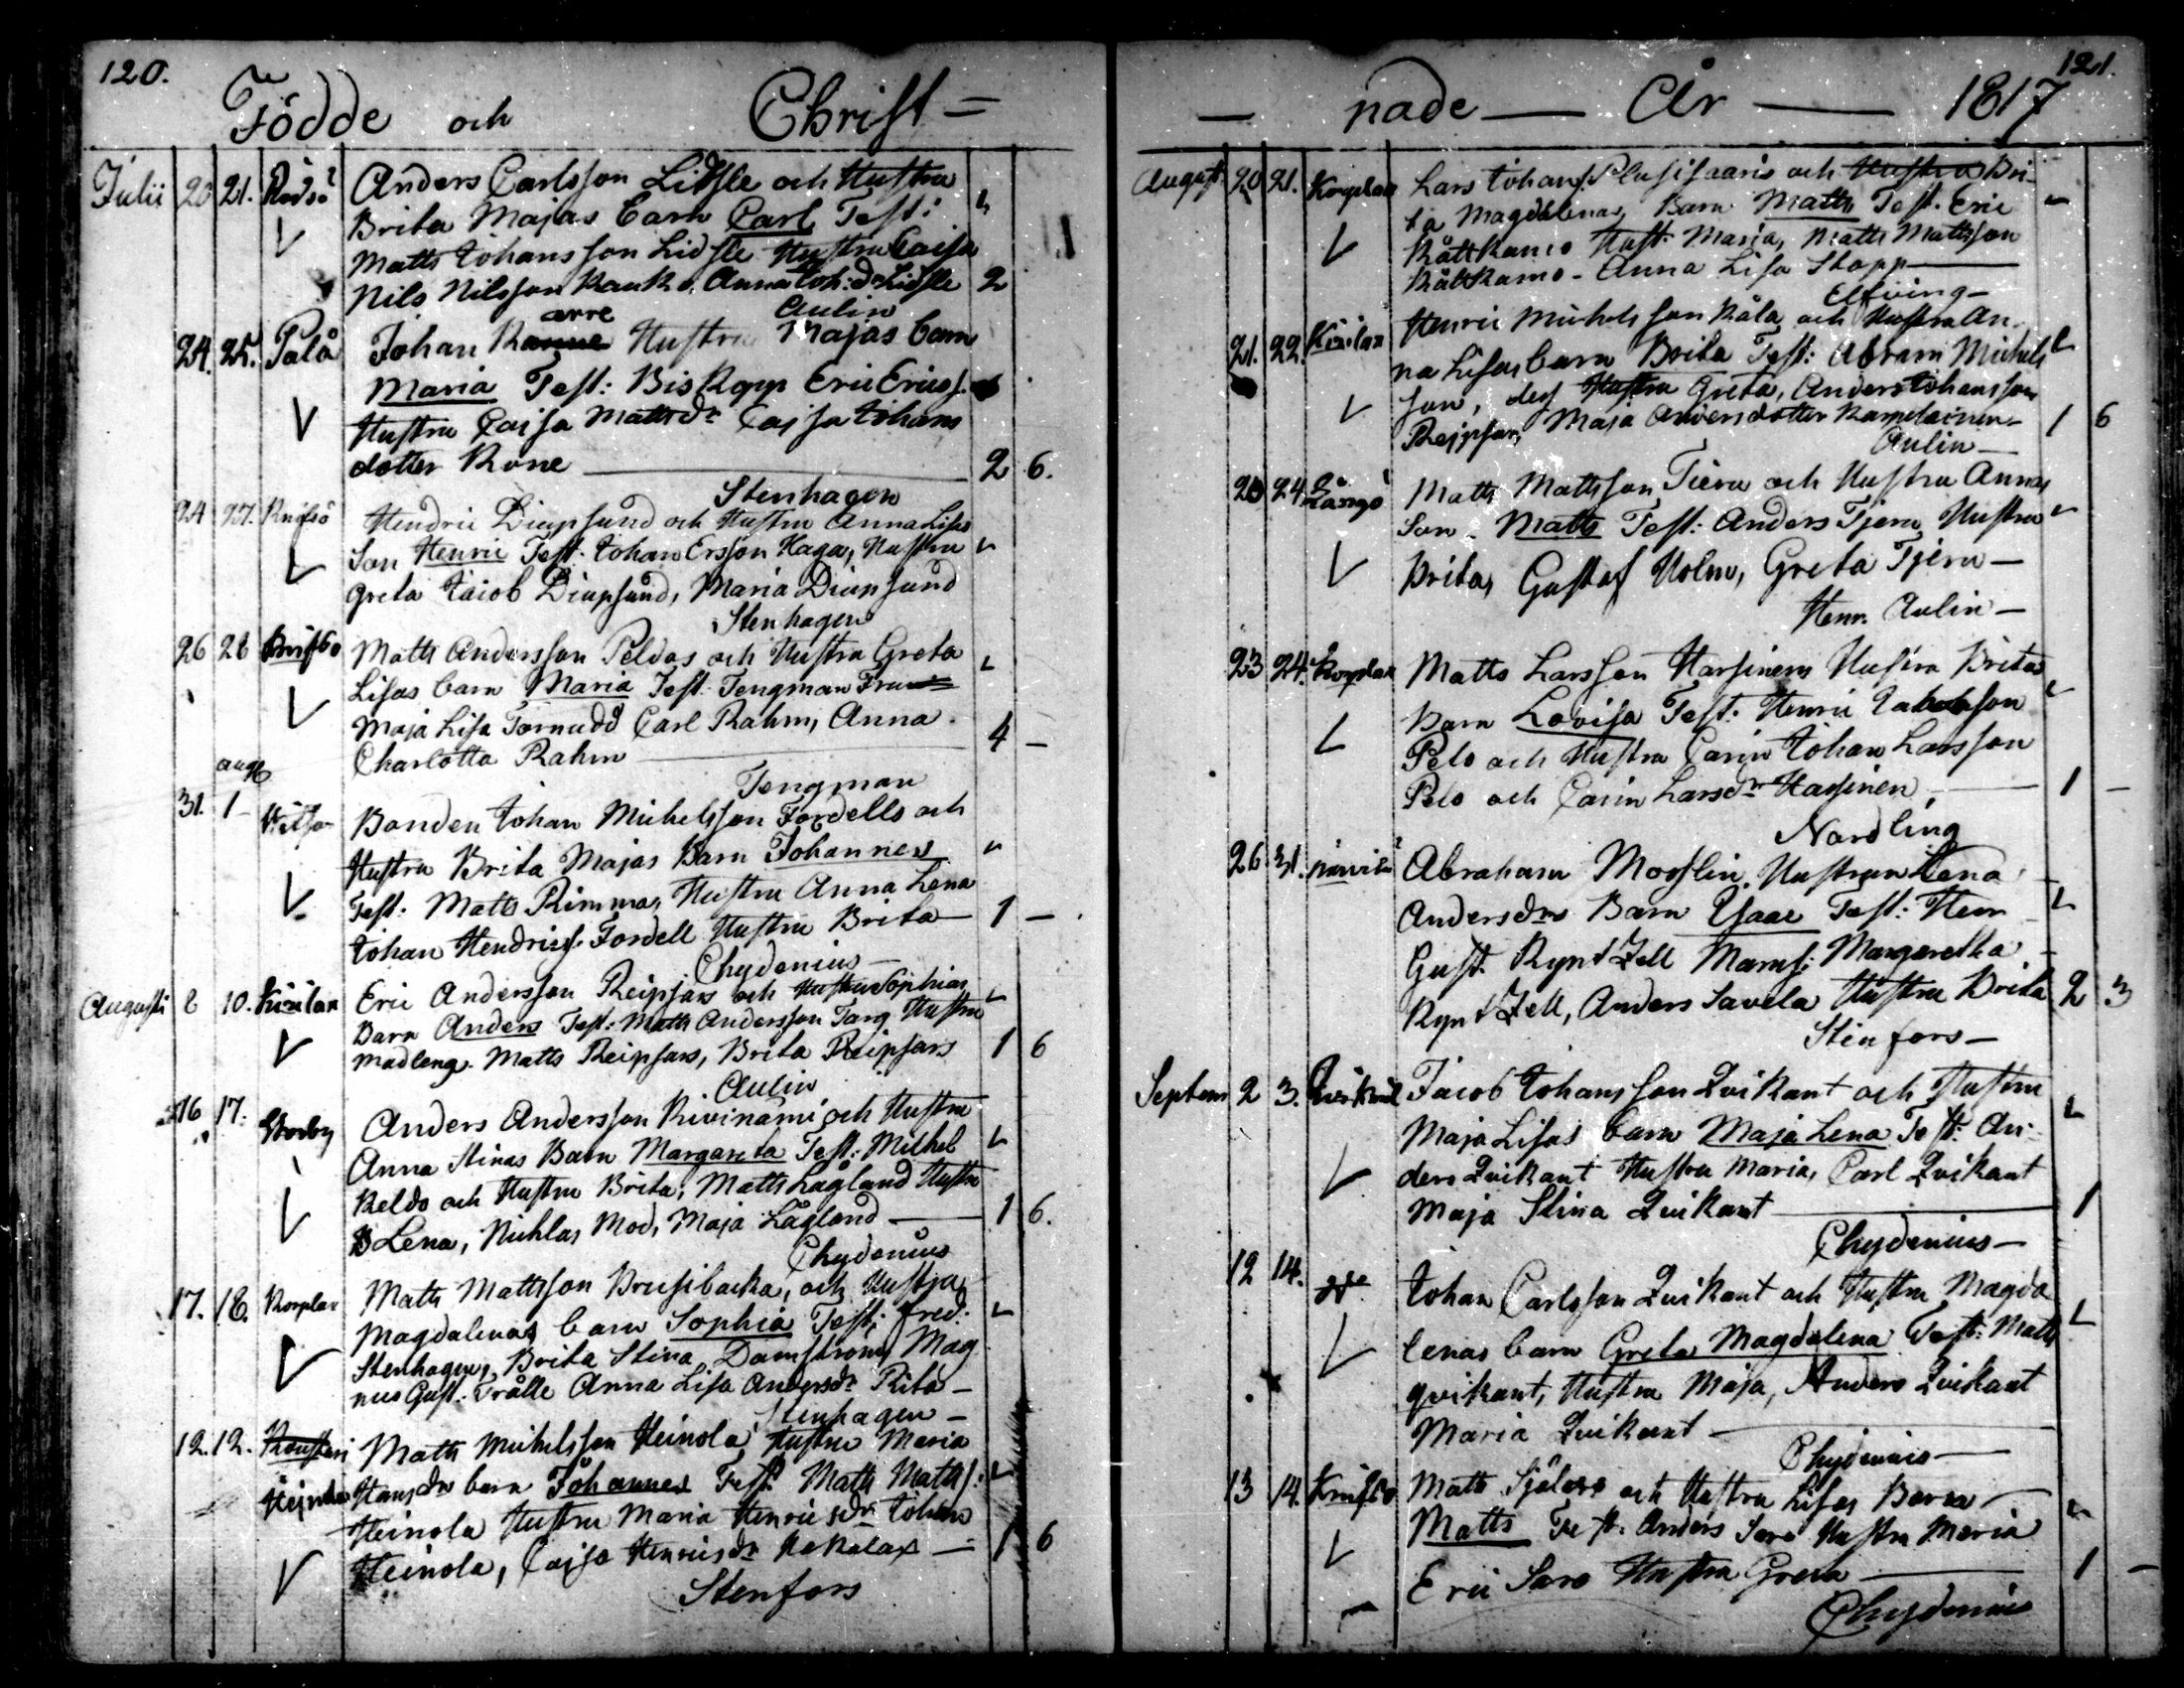 120.
Födde och Christ=
Julii 20 21. Rödsö Anders Carlsson Lidsle och Hustru
Brita Majas barn Carl Test:
Matts Johansson Lidsle Hustru Caisa
Nils Nilsson Kauko, Anna Joh:dr Lidsle 2
Aulin
24. 25. Palå Johan Hustru Majas barn
arre
Maria Test: Biskopp Eric Ericss.
Hustru Cajsa Mattsdr Cajsa Johans
dotter Kone 2 6.
Stenhagen
24 27. Knifsö Hendric Diupsund och Hustru Anna Lisas
Son Henric Test: Johan Ersson Haga, Hustru
Greta Jacob Diupsund, Maria Diupsund
Stenhagen
26 28 Matts Andersson Peldas och Hustru Greta
Lisas barn Maria Test: Tengman Fru
Maja Lisa Törnudd Carl Rahm, Anna
Charlotta Rahm 4 –
Tengman
aug
31. 1 – Bonden Johan Michelsson Fordells och
Hustru Brita Majas Barn Johannes
Test: Matts Rimma, Hustru Anna Lena
Johan Hendricss. Fordell Hustru Brita 1 –
Chydenius
Augusti 8 10. Kirilax Eric Andersson Reipsars och Hustru Sophias
Barn Anders Test: Matts Andersson Targ Hustru
Madlena. Matts Reipsars, Brita Reipsars 1 6
Aulin
16 17. Storby Anders Andersson Rivinämi och Hustru
Anna Stinas Barn Margareta Test: Michel
Keldo och Hustru Brita, Matts Lågland Hustru
Lena, Nichlas Mod, Maja Lågland 1 6.
Chydenius
17. 18. Korplax Matts Mattsson Brusibacka, och Hustru
Magdalenas barn Sophia Test: Fred:
Stenhagen, Brita Stina Damström Mag
nus Gust. Trålle Anna Lisa Andersdr Rita
Stenhagen
12. 12. Matts Michelsson Heinola Hustru Maria
Hansdrs barn Johannes Test: Matts Mattss:
Heinola Hustru Maria Henricsdr Johan
Heinola, Cajsa Henricsdr Kakalax 1 6
Stenfors
121.
nade År 1817
August 20 21. Korplax Lars Johanss. Plusisaaris och Hustru Bri-
ta Magdalenas Barn Matts Test. Eric
Råttkamo Hust: Maria, Matts Mattsson
Råttkamo – Anna Lisa Stopp
Elfving
21. 22. Kirilax Henric Michelsson Råla och Hustru An-
na Lisas barn Brita Test: Abram Michels
son, dess Hustru Greta, Anders Johansson
Reipsar, Maja Andersdotter Kamelainen 1 6
Aulin
20 24. Långö Matts Mattsson Tiera och Hustru Annas
Son Matts Test: Anders Tjera Hustru
Brita, Gustaf Holm, Greta Tjera
Henr. Aulin
23 24. Korplax Matts Larsson Harsinens Hustru Britas
Barn Lovisa Test: Henric Jakobsson
Pelo och Hustru Carin Johan Larsson
Pelo och Carin Larsdr Harsinen, 1 –
Nordling
26 31. Abraham Mosslin, Hustrun Lena
Andersdrs Barn Isaac Test: Henr
Gust. Ryntzell Mamss: Margaretha
Ryntzell, Anders Savela Hustru Brita 2 3
Stenfors
Septem 2 3. Jacob Johansson Quikant och Hustru
Maja Lisas barn Maja Lena Test: An-
ders Quikant Hustru Maria, Carl Quikant
Maja Stina Quikant 1
Chydenius
12 14. Johan Carlsson Quikant och Hustru Magda
lenas barn Greta Magdalena Test: Matts
Qvikant, Hustru Maja, Anders Quikant
Maria Quikant
Chydenius
13 14. Knifsö Matts Sjöloro och Hustru Lisas Barn
Matts Test: Anders Soro Hustru Maria
Eric Soro Hustru Greta 1 –
Chydenius